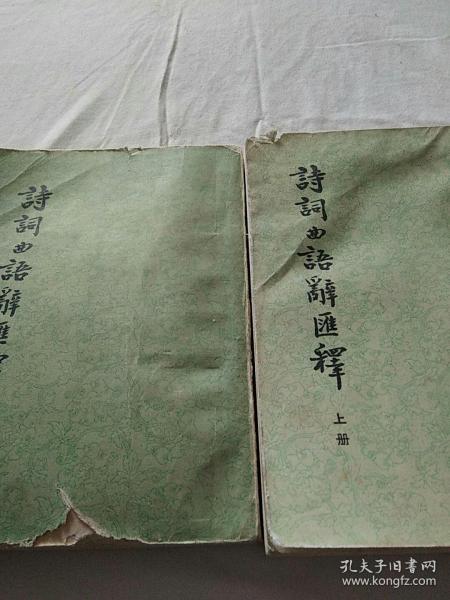 詩詞曲語辭匯釋
上册
詩詞曲語辭匯釋
孔夫子旧书网
www.kongfz.com